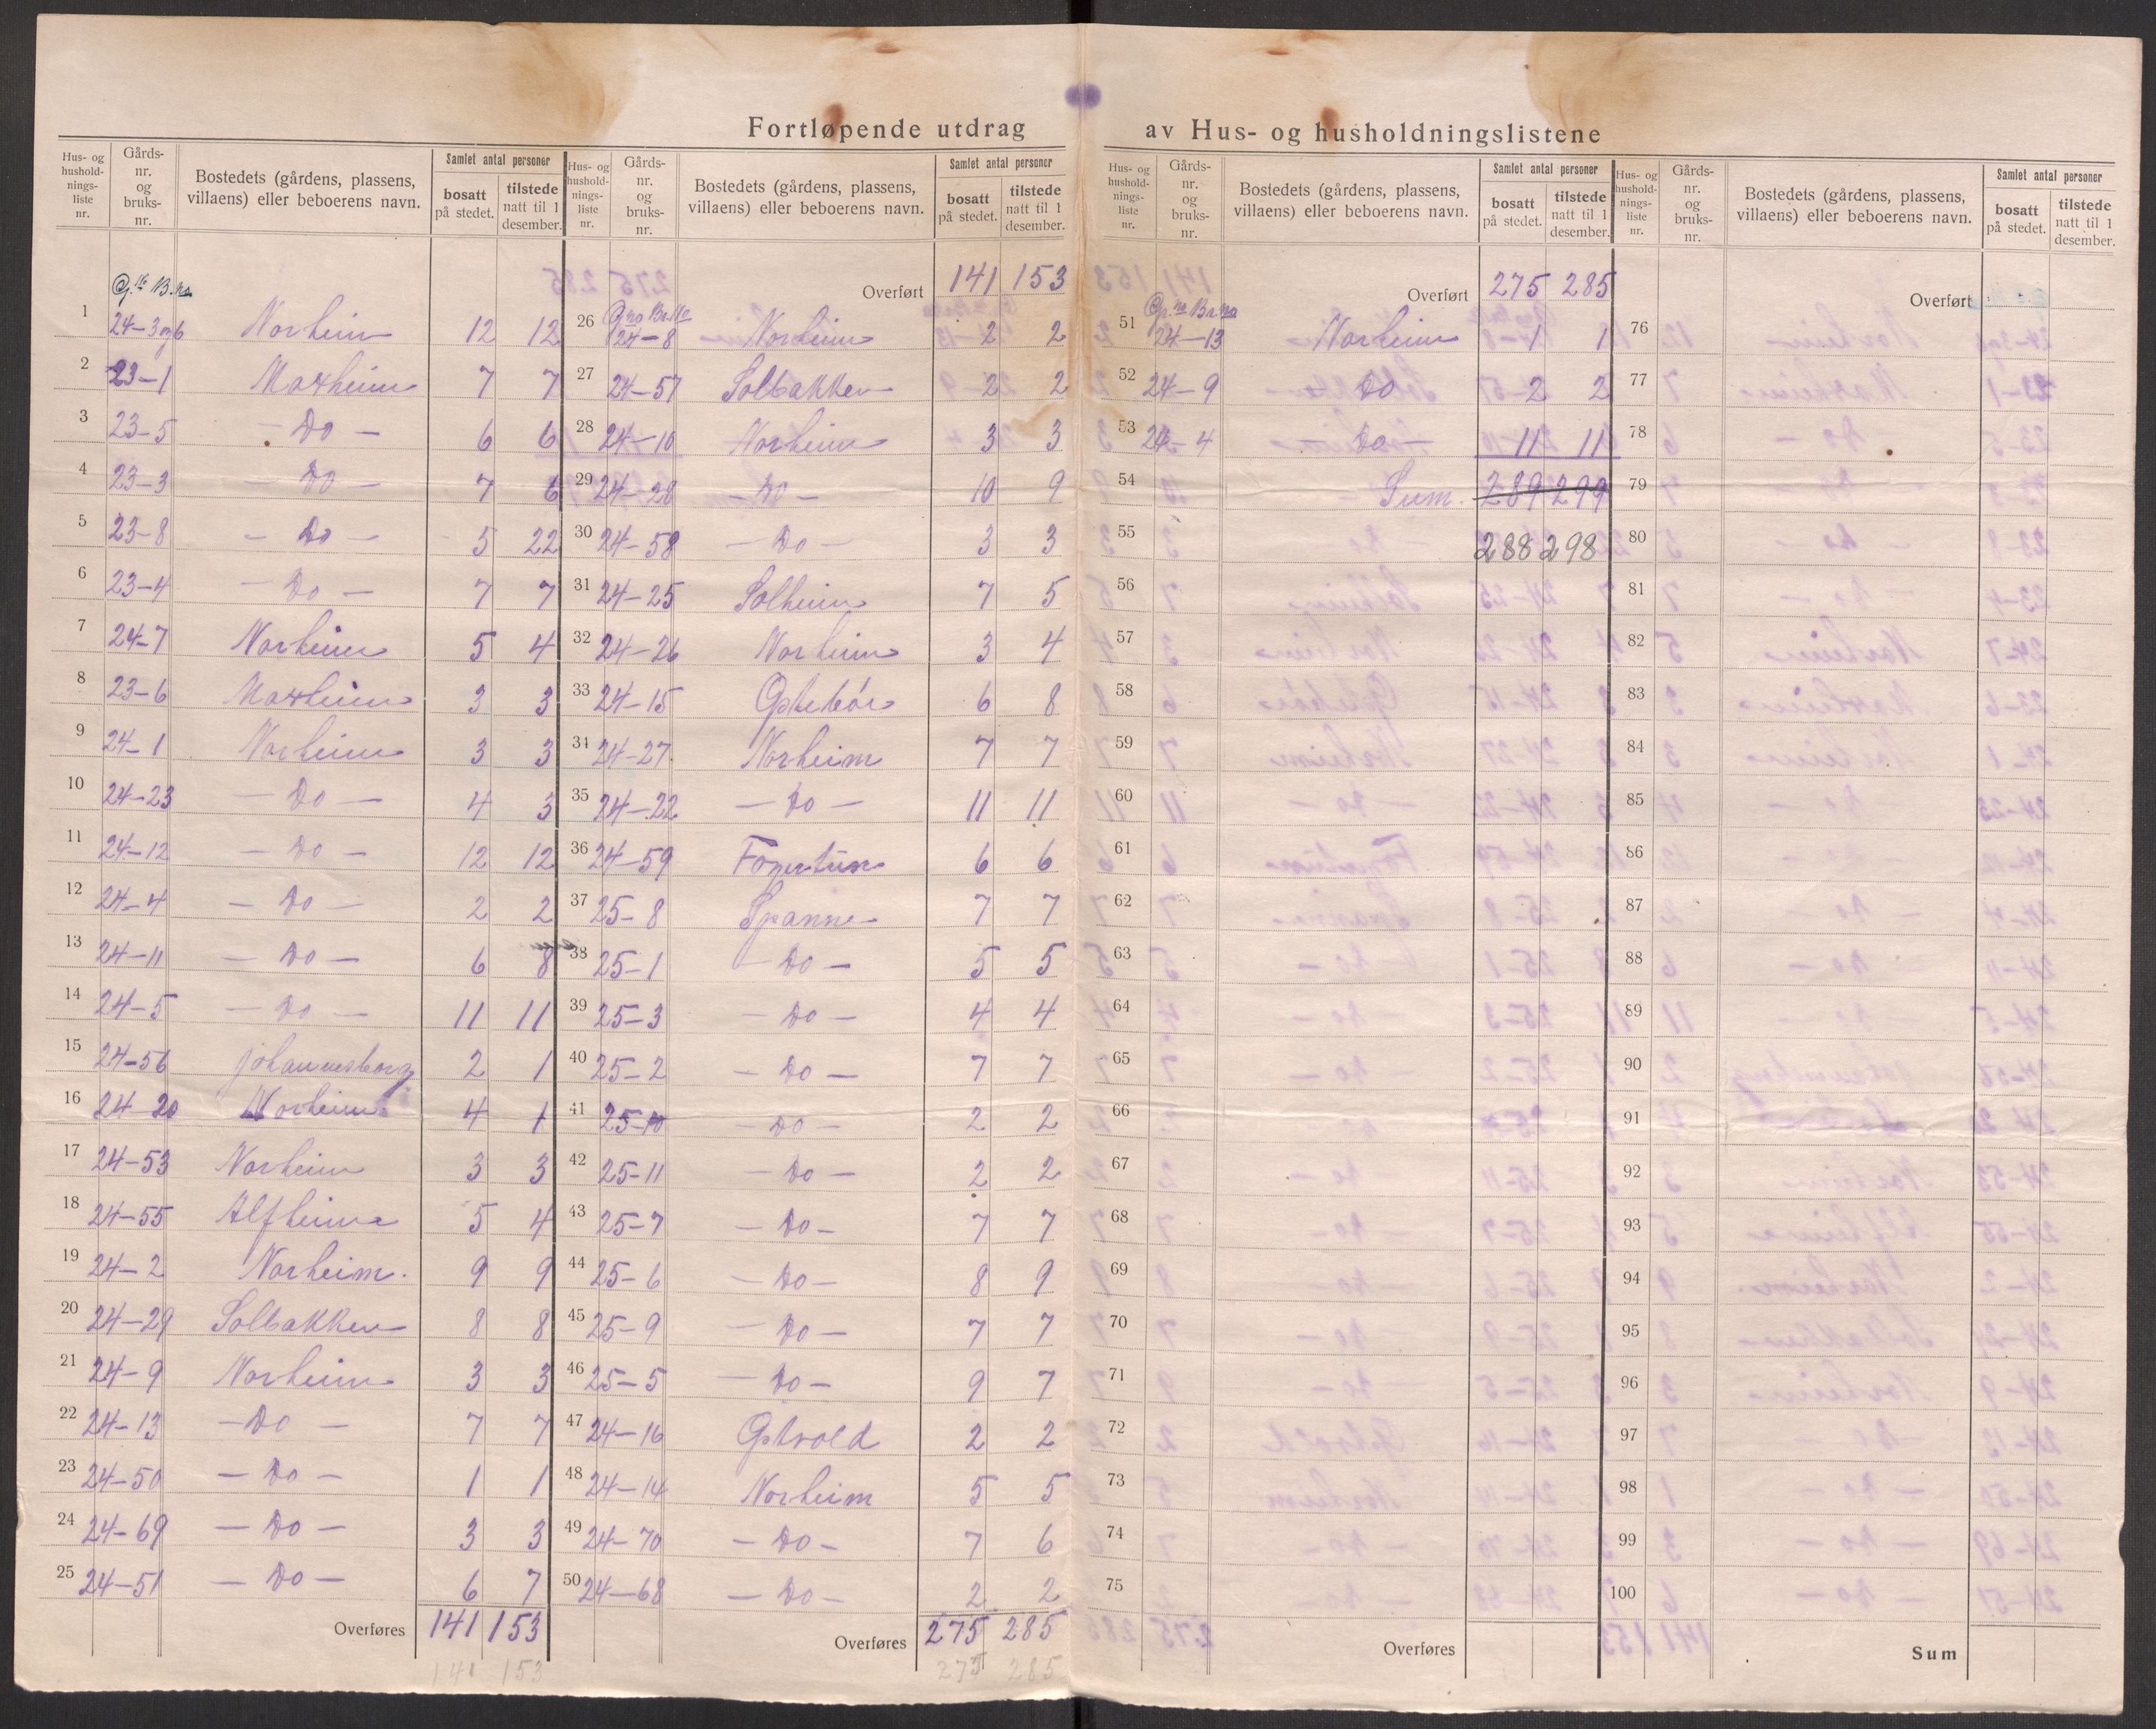 Fortløpende utdrag av Hus- og husholdningslistene
Hus- og hushold- nings- liste nr. | Gårds- nr. og bruks- nr. | Bostedets (gårdens, plassens, villaens) eller beboerens navn. | Samlet antal personer | bosatt på stedet. | tilstede natt til 1 desember.
G.no B.no
1 24-3og6 Norheim 12 12
2 23-1 Moxheim 7 7
3 23-5 - Do - 6 6
4 23-3 - Do - 7 6
5 23-8 - Do - 5 22
6 23-4 - Do - 7 7
7 24-7 Norheim 5 4
8 23-6 Moxheim 3 3
9 24-1 Norheim 3 3
10 24-23 - Do - 4 3
11 24-12 - Do - 12 12
12 24-4 - Do - 2 2
13 24-11 - Do - 6 8
14 24-5 - Do - 11 11
15 24-56 Johannesborg 2 1
16 24 20 Norheim 4 1
17 24-53 Norheim 3 3
18 24-55 Alfheim 5 4
19 24-2 Norheim. 9 9
20 24-29 Solbakken 8 8
21 24-9 Norheim 3 3
22 24-13 - Do - 7 7
23 24-50 - Do - 1 1
24 24-69 - Do - 3 3
25 24-51 - Do - 6 7
Overføres 141 153
141 153
Hus- og hushold- nings- liste nr. | Gårds- nr. og bruks- nr. | Bostedets (gårdens, plassens, villaens) eller beboerens navn. | Samlet antal personer | bosatt på stedet. | tilstede natt til 1 desember.
Overført 141 153
G.no Br.No
26 24-8 Norheim 2 2
27 24-57 Solbakken 2 2
28 24-10 Norheim 3 3
29 24-28 - Do - 10 9
30 24-58 - Do - 3 3
31 24-25 Solheim 7 5
32 24-26 Norheim 3 4
33 24-15 6 8
34 24-27. Norheim 7 7
35 24-22 - Do - 11 11
36 24-59 6 6
37 25-8 Spanne 7 7
38 25-1 - Do - 5 5
39 25-3 - Do - 4 4
40 25-2 - Do - 7 7
41 25-10 - Do - 2 2
42 25-11 - Do - 2 2
43 25-7 - Do - 7 7
44 25-6 - Do - 8 9
45 25-9 - Do - 7 7
46 25-5 - Do - 9 7
47 24-16 2 2
48 24-14 Norheim 5 5
49 24-70 - Do - 7 6
50 24-68 - Do - 2 2
Overføres 275 285
275 285
Hus- og hushold- nings- liste nr. | Gårds- nr. og bruks- nr. | Bostedets (gårdens, plassens, villaens) eller beboerens navn. | Samlet antal personer | bosatt på stedet. | tilstede natt til 1 desember.
Overført 275 285
G.no Br.no
51 24-13 Norheim 1 1
52 24-9 Do 2 2
53 24-4 - Do - 11 11
54 Sum. 289 299
55 288 298
56
57
58
59
60
61
62
63
64
65
66
67
68
69
70
71
72
73
74
75
Overføres
Hus- og hushold- nings- liste nr. | Gårds- nr. og bruks- nr. | Bostedets (gårdens, plassens, villaens) eller beboerens navn. | Samlet antal personer | bosatt på stedet. | tilstede natt til 1 desember.
Overført
76
77
78
79
80
81
82
83
84
85
86
87
88
89
90
91
92
93
94
95
96
97
98
99
100
Sum